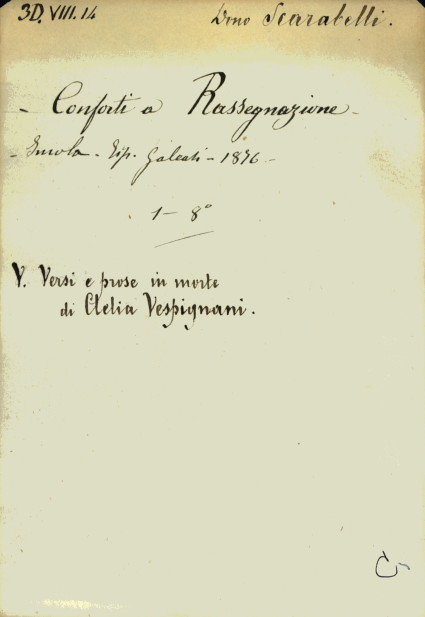 3D.VIII.14
Dono Scarabelli.
- Conforti a Rassegnazione -
- Imola - Tip. Galeati - 1876 -
1 - 8°
V. Versi e prose in morte
di Clelia Vespignani.